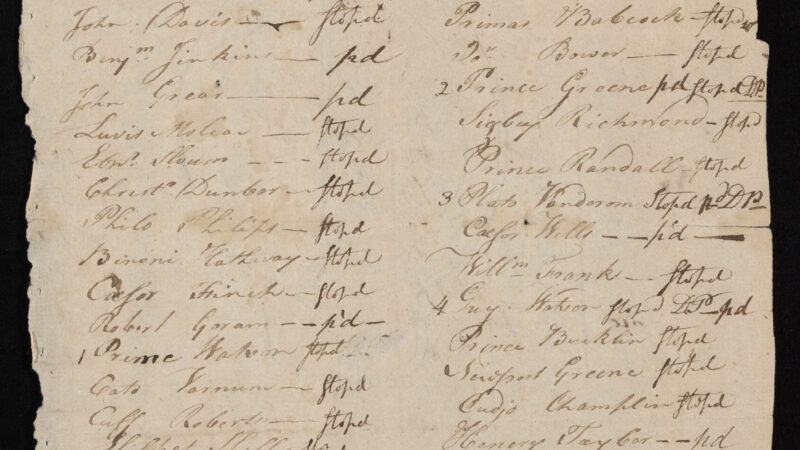 John Davis — stopd
Benjm Jinkins — pd
John Grear — pd
Luvis — stopd
Ebnr Sloum - - - stopd
Christo Dunbar — stopd
Philo Philips — stopd
Binoni Hathaway — stopd
Cæsor Finch — stopd
Robert Goram — — p'd —
1 Prime Watson stopd
Cato Varnum — stopd
Cuff Roberts — stopd
Primas Babcock — stopd
Bower — stopd
2 Prince Greene pd stopd DP
Sigby Richmond — stopd
Prince Randall — stopd
3 Plato Vandorom Stopd pd DP
Cæsor Wells — — p'd —
Willm Frank — — stopd
4 Guy Watson stopd DP — pd
Prince Bucklin stopd
Newport Greene stopd
Cudjo Champlin stopd
Henery Tayber — — pd